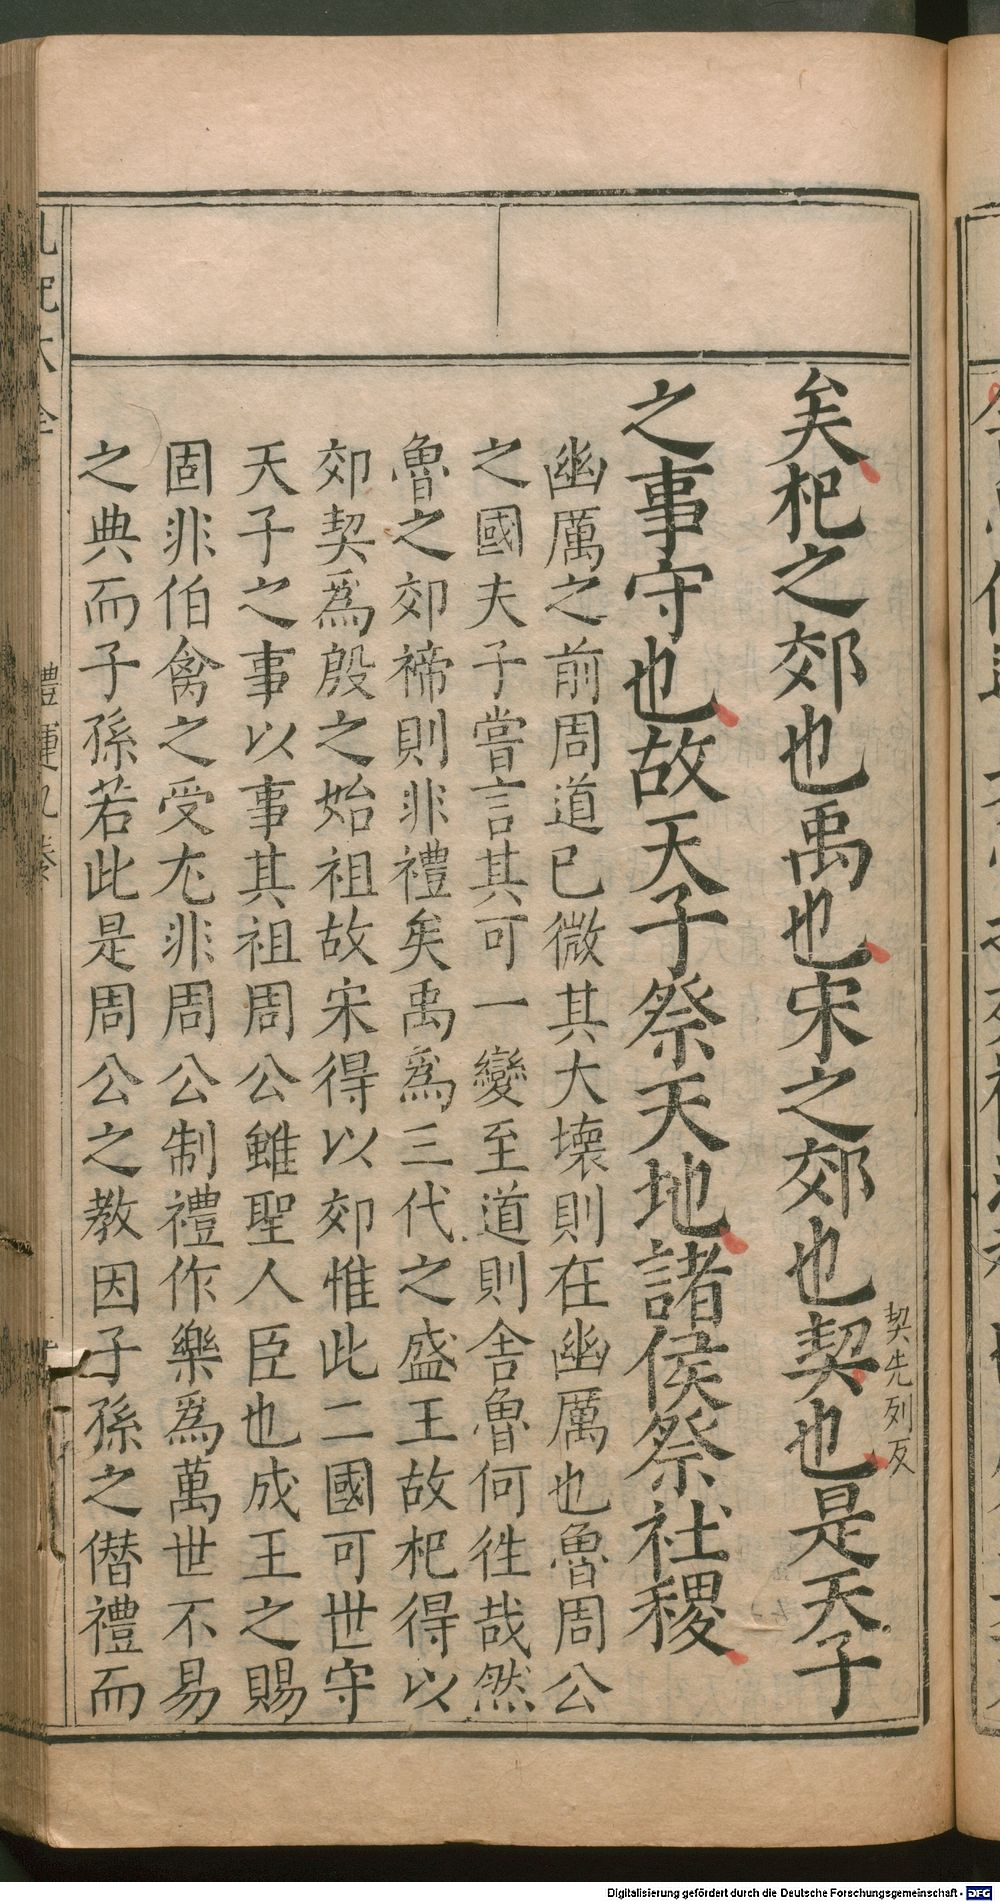 矣杞之郊也禹也宋之郊也契也是天子
契先列反
之事守也故天子祭天地諸侯祭社稷
幽厲之前周道已微其大壞則在幽厲也魯周公
之國夫子嘗言其可一變至道則舍魯何徃哉然
魯之郊禘則非禮矣禹爲三代之盛王故杞得以
郊契爲殷之始祖故宋得以郊惟此二國可世守
天子之事以事其祖周公雖聖人臣也成王之賜
固非伯禽之受尢非周公制禮作樂爲萬世不易
之典而子孫若此是周公之教因子孫之僣禮而
禮運九卷
Digitalisierung gefördert durch die Deutsche Forschungsgemeinschaft - DFG